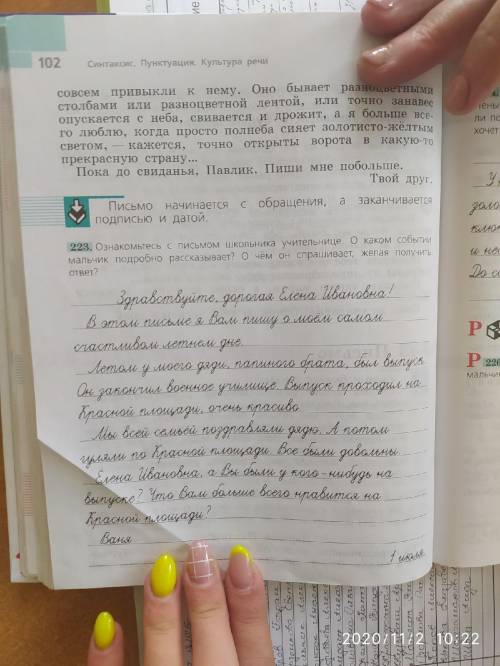 102
Синтаксис. Пунктуация. Культура речи
совсем привыкли к нему. Оно бывает разноцветными
столбами или разноцветной лентой, или точно занавес
опускается с неба, свивается и дрожит, а я больше все-
го люблю, когда просто полнеба сияет золотисто-жёлтым
светом, — кажется, точно открыты ворота в какую-то
прекрасную страну...
Пока до свиданья, Павлик. Пиши мне побольше.
Твой друг.
Письмо начинается с обращения, а заканчивается
подписью и датой.
223. Ознакомьтесь с письмом школьника учительнице. О каком событии
мальчик подробно рассказывает? О чём он спрашивает, желая получить
ответ?
Здравствуйте, дорогая Елена Ивановна!
В этом письме я Вам пишу о моём самом
счастливом летнем дне.
Летом у моего дяди, папиного брата, был выпуск.
Он закончил военное училище. Выпуск проходил на
Красной площади, очень красиво.
Мы всей семьёй поздравляли дядю. А потом
гуляли по Красной площади. Все были довольны.
Елена Ивановна, а Вы были у кого-нибудь на
выпуске? Что Вам больше всего нравится на
Красной площади?
Ваня
1 июля.
Р
Р 226
мальчик
2020/11/2 10:22